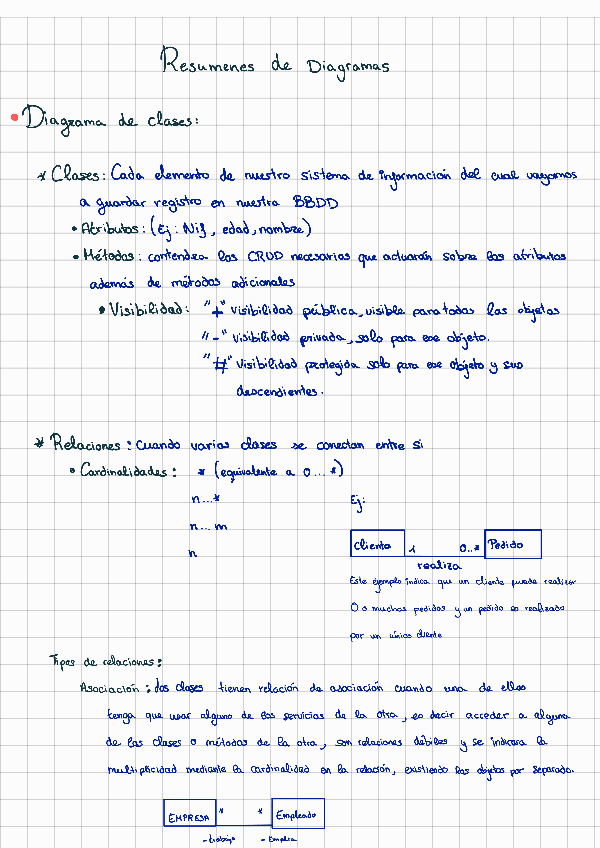 Resumenes de Diagramas
• Diagrama de clases:
* Clases: Cada elemento de nuestro sistema de información del cual vayamos
a guardar registro en nuestra BBDD
• Atributos: (Ej: Nif, edad, nombre)
• Métodos: contendrá los CRUD necesarios que actuarán sobre los atributos
además de métodos adicionales
• Visibilidad: "+" visibilidad pública, visible para todas los objetos
"-" visibilidad privada, solo para ese objeto.
"#" visibilidad protegida solo para ese objeto y sus
descendientes.
* Relaciones: Cuando varias clases se conectan entre si
• Cardinalidades: * (equivalente a 0...*)
n...*
Ej:
n...m
n
Cliente 1 0..* Pedido
realiza
Este ejemplo indica que un cliente puede realizar
0 o muchos pedidos y un pedido es realizado
por un único cliente
Tipos de relaciones:
Asociación: dos clases tienen relación de asociación cuando una de ellas
tenga que usar alguno de los servicios de la otra, es decir acceder a alguna
de las clases o métodos de la otra, son relaciones débiles y se indicara la
multiplicidad mediante la cardinalidad en la relación, existiendo los objetos por separado.
EMPRESA * * Empleado
- trabaja - Emplea